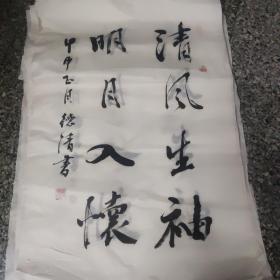 清风生袖
明月入怀
甲申正月德清书